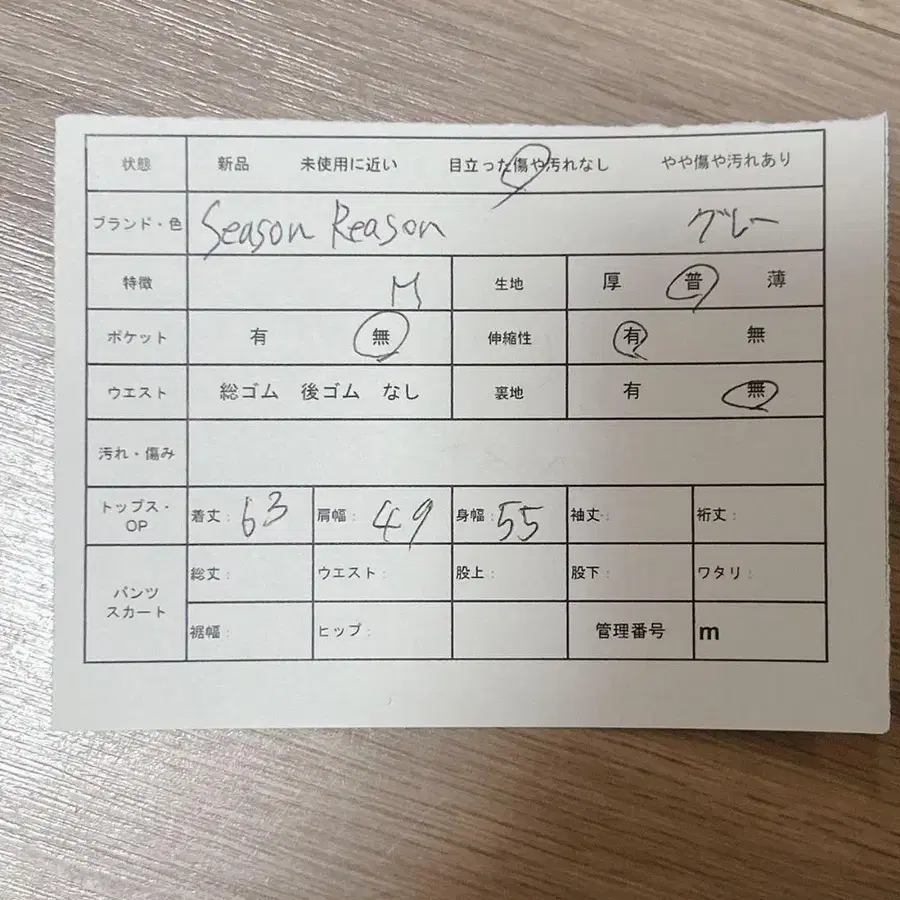 状態 新品 未使用に近い 目立った傷や汚れなし やや傷や汚れあり
ブランド・色 Season Reason グレー
特徴 M 生地 厚 普 薄
ポケット 有 無 伸縮性 有 無
ウエスト 総ゴム 後ゴム なし 裏地 有 無
汚れ・傷み
トップス・OP 着丈: 63 肩幅: 49 身幅: 55 袖丈: 裄丈:
パンツ スカート 総丈: ウエスト: 股上: 股下: ワタリ:
裾幅: ヒップ: 管理番号 m